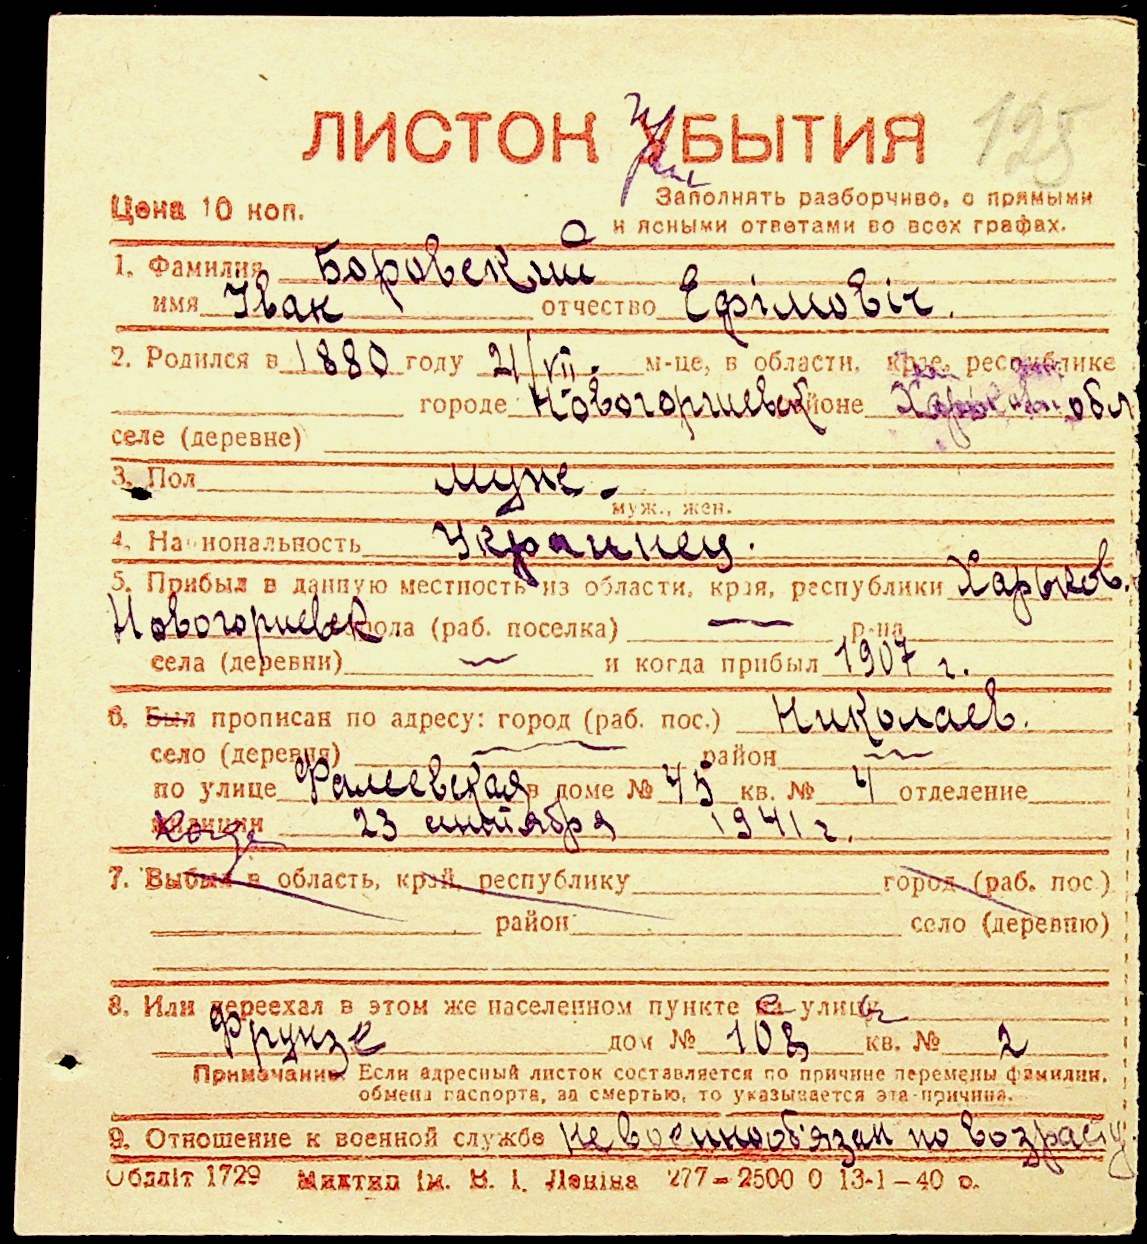 ЛИСТОК УБЫТИЯ 125
При
Цена 10 коп.
Заполнять разборчиво, с прямыми
и ясными ответами во всех графах.
1. Фамилия Боровский
имя Іван отчество Ефімовіч.
2. Родился в 1880 году 21/VII. м-це, в области, крае, республике
городе Новогоргиевск районе Харьков. обл
селе (деревне)
3. Пол муж.
муж., жен.
4. Национальность Украинец.
5. Прибыл в данную местность из области, края, республики Харьков.
Новогоргиевск города (раб. поселка) — р-на
села (деревни) — и когда прибыл 1907 г.
6. Был прописан по адресу: город (раб. пос.) Николаев.
село (деревня) — район —
по улице Фалеевская в доме № 45 кв. № 4 отделение
милиции Когда 23 сентября 1941 г.
7. Выбыл в область, край, республику город (раб. пос.)
район село (деревню)
8. Или переехал в этом же населенном пункте с улицы
Фрунзе дом № 108 кв. № 2
Примечание. Если адресный листок составляется по причине перемены фамилии,
обмена паспорта, за смертью, то указывается эта причина.
9. Отношение к военной службе невоеннообязан по возрасту.
Обдліт 1729 Миктип ім. В. І. Леніна 277—2500 0 13-1—40 р.